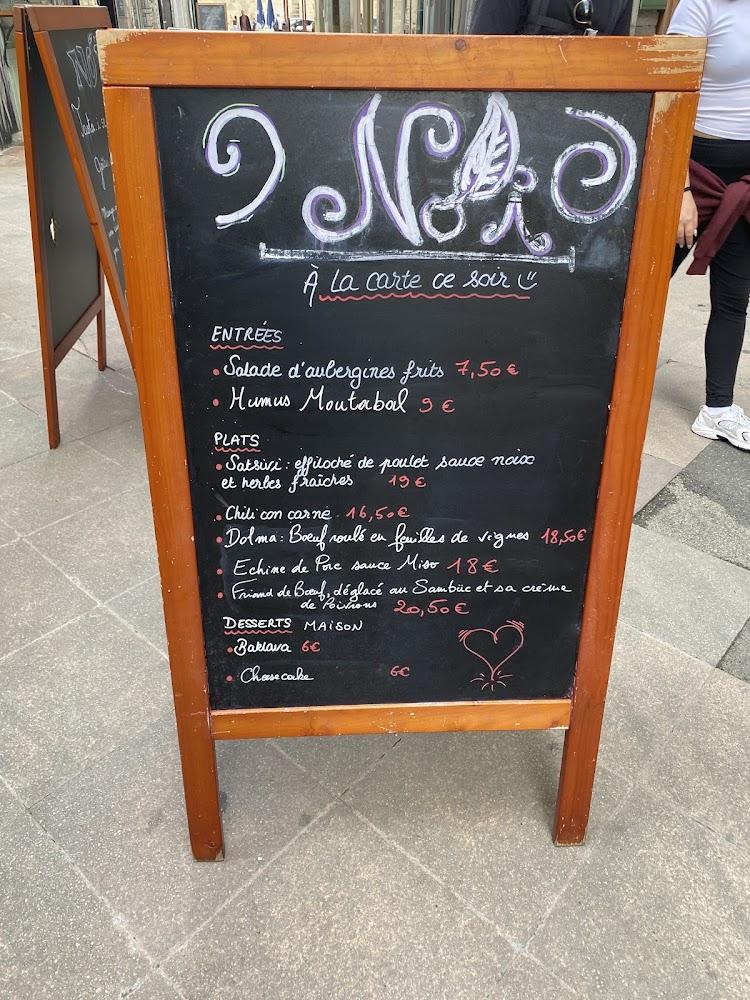 Noï
À La carte ce soir
ENTRÉES
• Salade d'aubergines frits 7,50 €
• Humus Moutabal 9 €
PLATS
• Satsivi : effiloché de poulet sauce noix
et herbes fraîches 19 €
• Chili con carne 16,50 €
• Dolma : Bœuf roulé en feuilles de vignes 18,50€
• Echine de Porc sauce Miso 18 €
• Friand de Bœuf, déglacé au Sambüc et sa crème
de Poivrons 20,50 €
DESSERTS MAISON
• Baklava 6€
• Cheesecake 6€